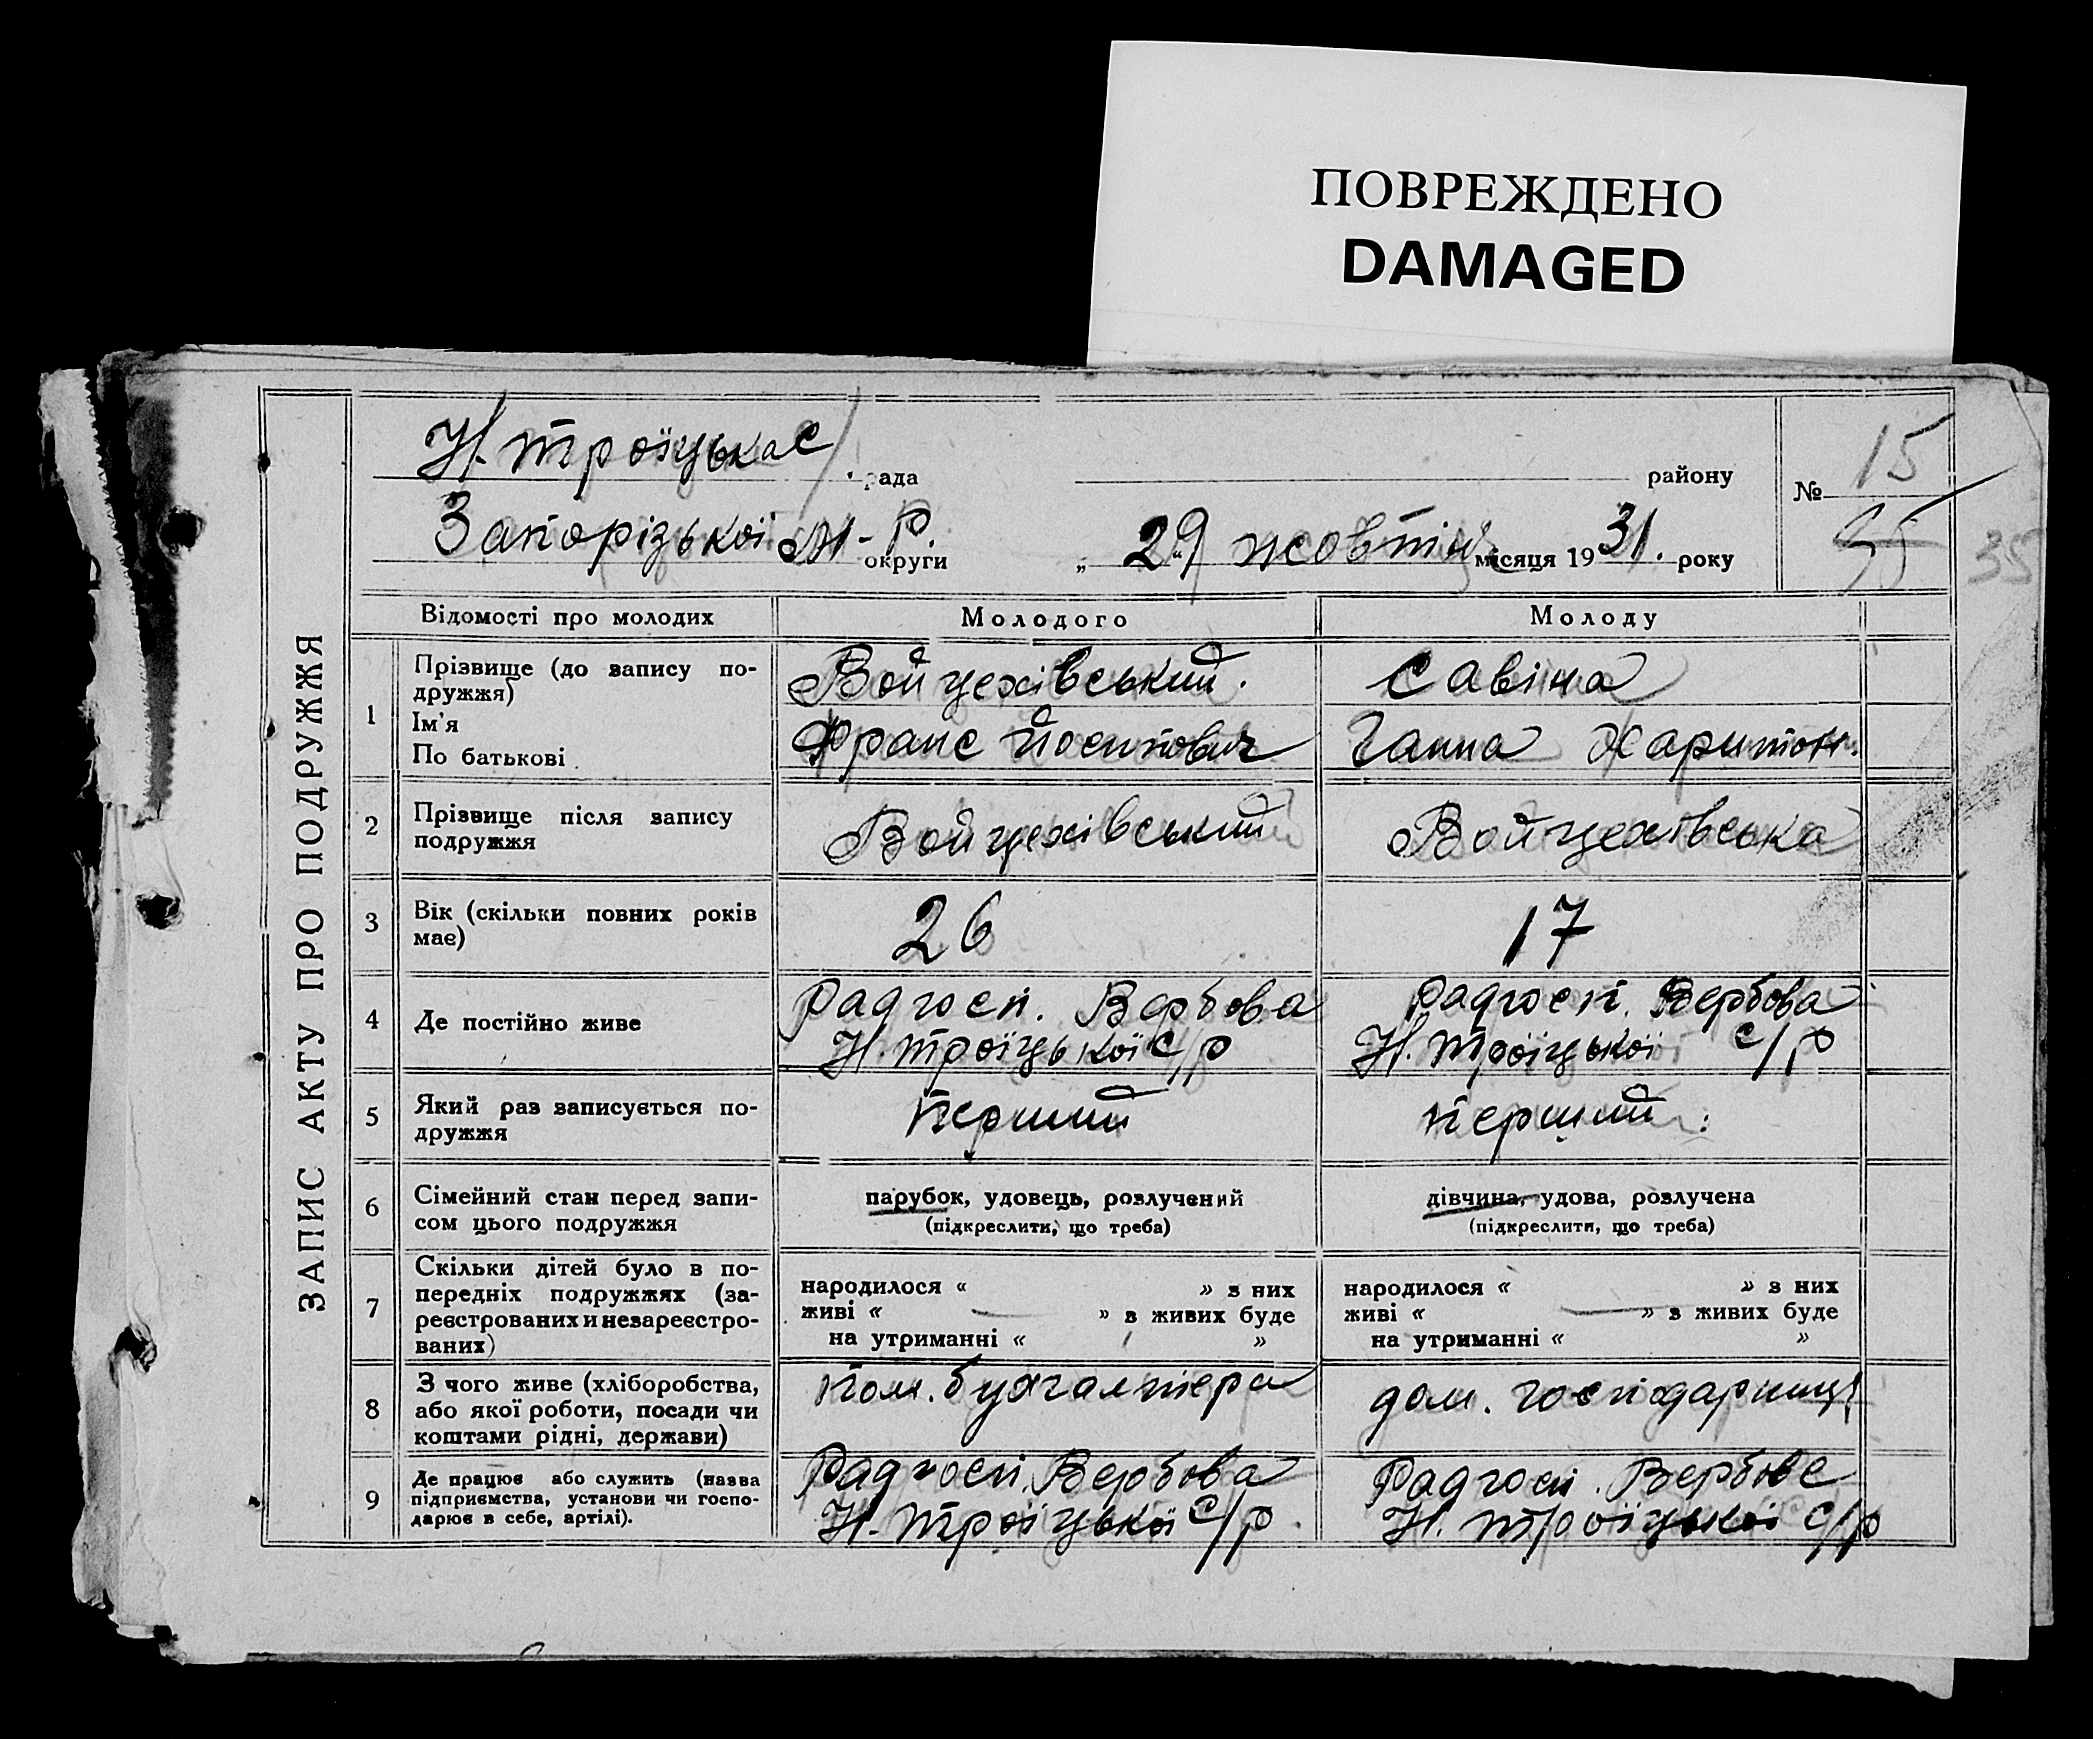 ПОВРЕЖДЕНО
DAMAGED
ЗАПИС АКТУ ПРО ПОДРУЖЖЯ
Н. Троїцька с/рада району
№ 15
35
35
Запорізької М-Р. округи „29“ жовтня місяця 1931. року
Відомості про молодих Молодого Молоду
1 Прізвище (до запису по-
дружжя)
Ім'я
По батькові
Войцехівський.
Франс Йосипович
Савіна
Ганна Харитон.
2 Прізвище після запису
подружжя
Войцехівський
Войцехівська
3 Вік (скільки повних років
має)
26
17
4 Де постійно живе
Радгосп. Вербова
Н. Троїцької с/р
Радгосп. Вербова
Н. Троїцької с/р
5 Який раз записується по-
дружжя
Перший
перший
6 Сімейний стан перед запи-
сом цього подружжя
парубок, удовець, розлучений
(підкреслити, що треба)
дівчина, удова, розлучена
(підкреслити, що треба)
7 Скільки дітей було в по-
передніх подружжях (за-
реєстрованих и незареєстро-
ваних)
народилося « » з них
живі « — » з живих буде
на утриманні « »
народилося « » з них
живі « — » з живих буде
на утриманні « »
8 З чого живе (хліборобства,
або якої роботи, посади чи
коштами рідні, держави)
Пом. бухгалтера
дом. господарниця
9 Де працює або служить (назва
підприємства, установи чи госпо-
дарює в себе, артілі).
Радгосп. Вербова
Н. Троїцької с/р
Радгосп. Вербове
Н. Троїцької с/р